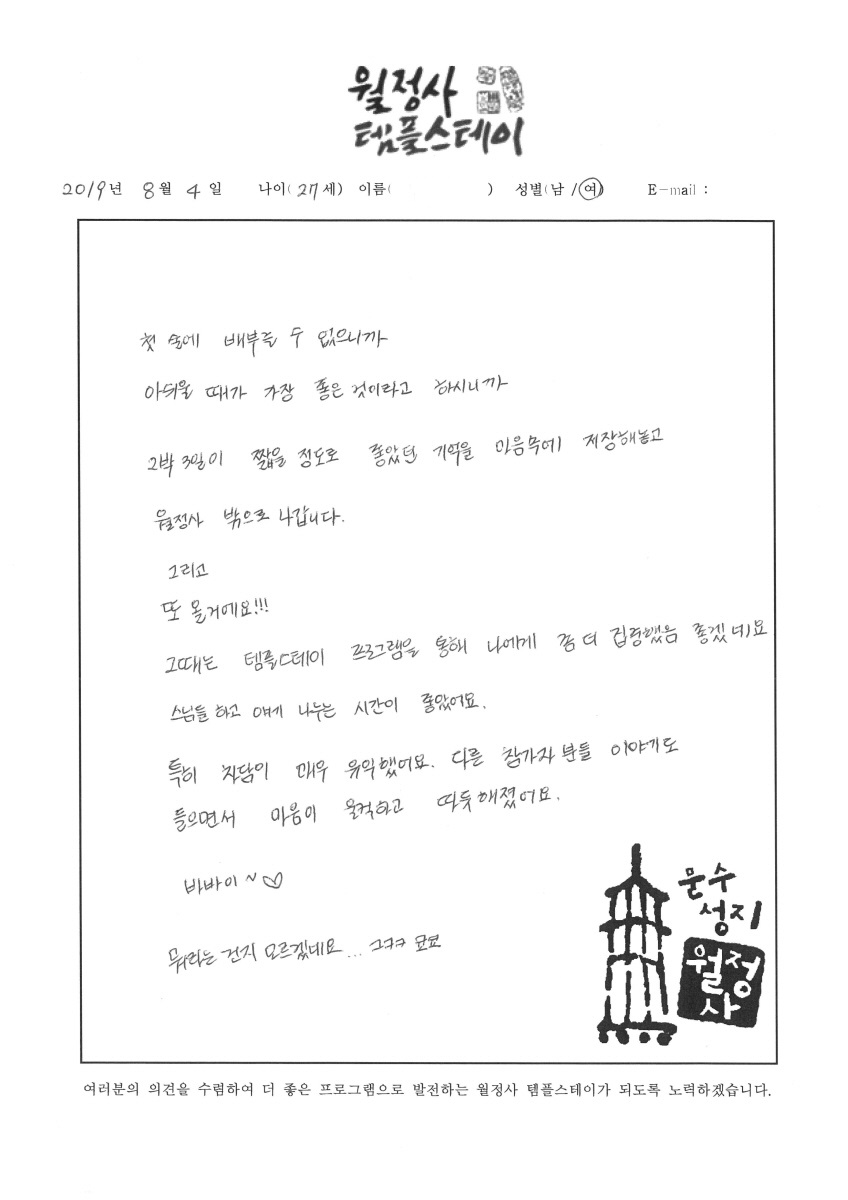 월정사
템플스테이
2019년 8월 4일 나이(27세) 이름( ) 성별(남/여) E-mail :
첫 술에 배부를 수 없으니까
아쉬울 때가 가장 좋은 것이라고 하시니까
2박 3일이 짧을 정도로 좋았던 기억을 마음속에 저장해놓고
월정사 밖으로 나갑니다.
그리고
또 올거에요!!!
그때는 템플스테이 프로그램을 통해 나에게 좀 더 집중했음 좋겠네요
스님들하고 얘기 나누는 시간이 좋았어요.
특히 차담이 매우 유익했어요. 다른 참가자분들 이야기도
들으면서 마음이 울컥하고 따듯해졌어요.
바바이~♡
뭐라는 건지 모르겠네요...
문수
성지
월정
사
여러분의 의견을 수렴하여 더 좋은 프로그램으로 발전하는 월정사 템플스테이가 되도록 노력하겠습니다.